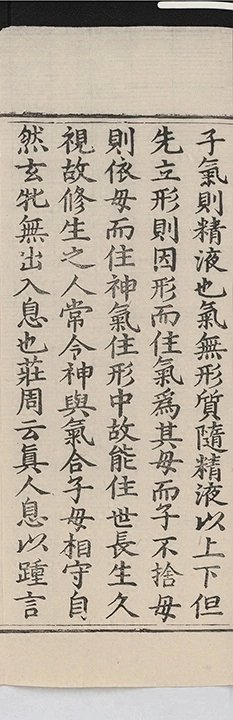 子氣則精液也氣無形質隨精液以上下但
先立形則因形而住氣爲其母而子不捨母
則依母而住神氣住形中故能住世長生久
視故修生之人常令神與氣合子母相守自
然玄牝無出入息也莊周云眞人息以踵言